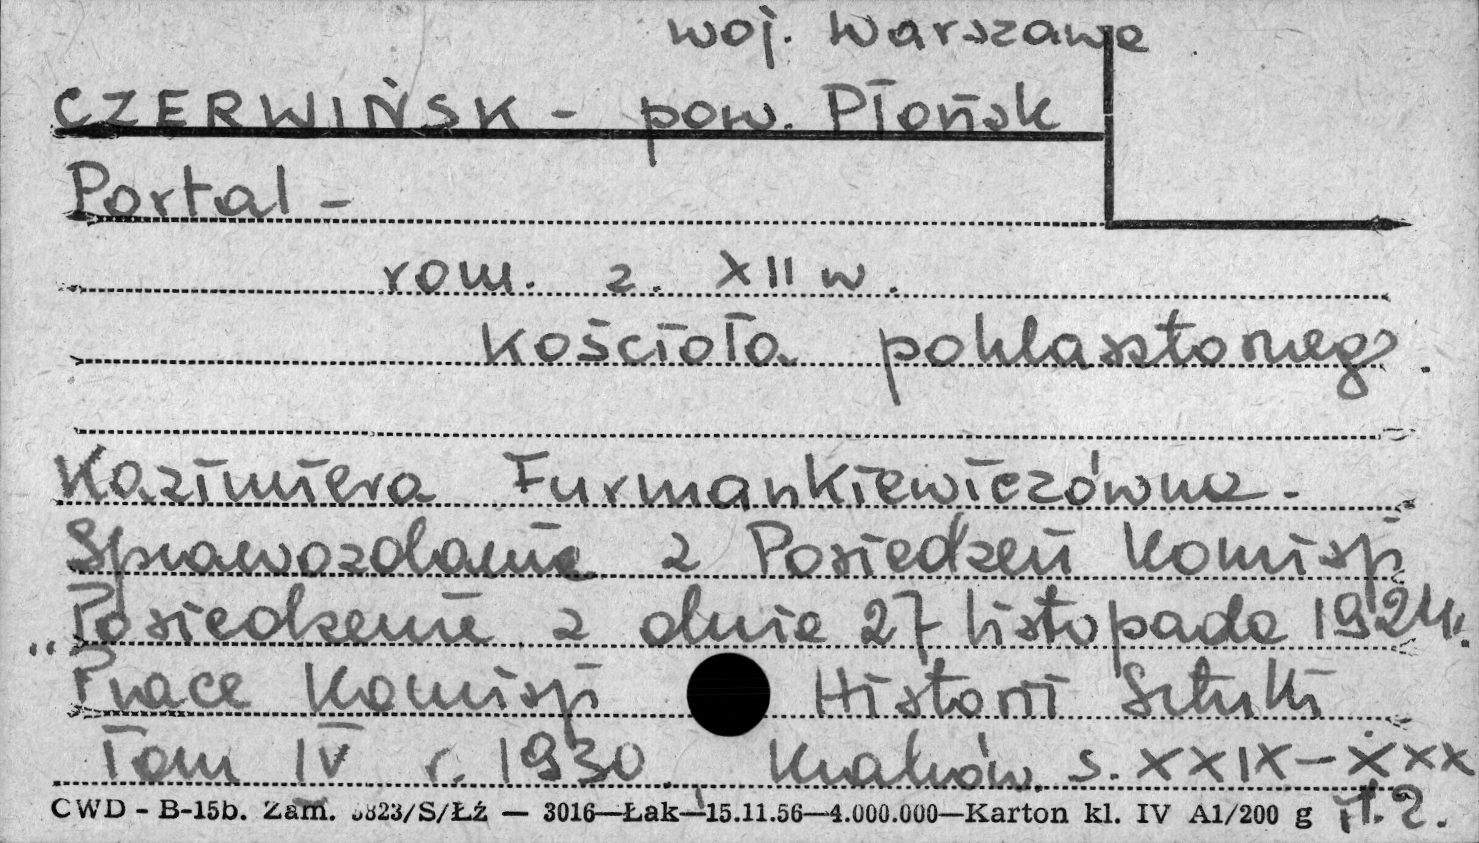 woj. Warszawa
CZERWIŃSK - pow. Płońsk
Portal -
rom. z. XII w.
Kościoła poklasztornego.
Kazimiera Furmankiewiczówna -
Sprawozdanie z Posiedzeń Komisji
Posiedzenie z dnia 27 listopada 1924r.
"Prace Komisji Historii Sztuki
Tom IV r. 1930. Kraków. s. XXIX-XXX
CWD - B-15b. Zam. 3823/S/Łź — 3016—Łak—15.11.56—4.000.000—Karton kl. IV A1/200 g